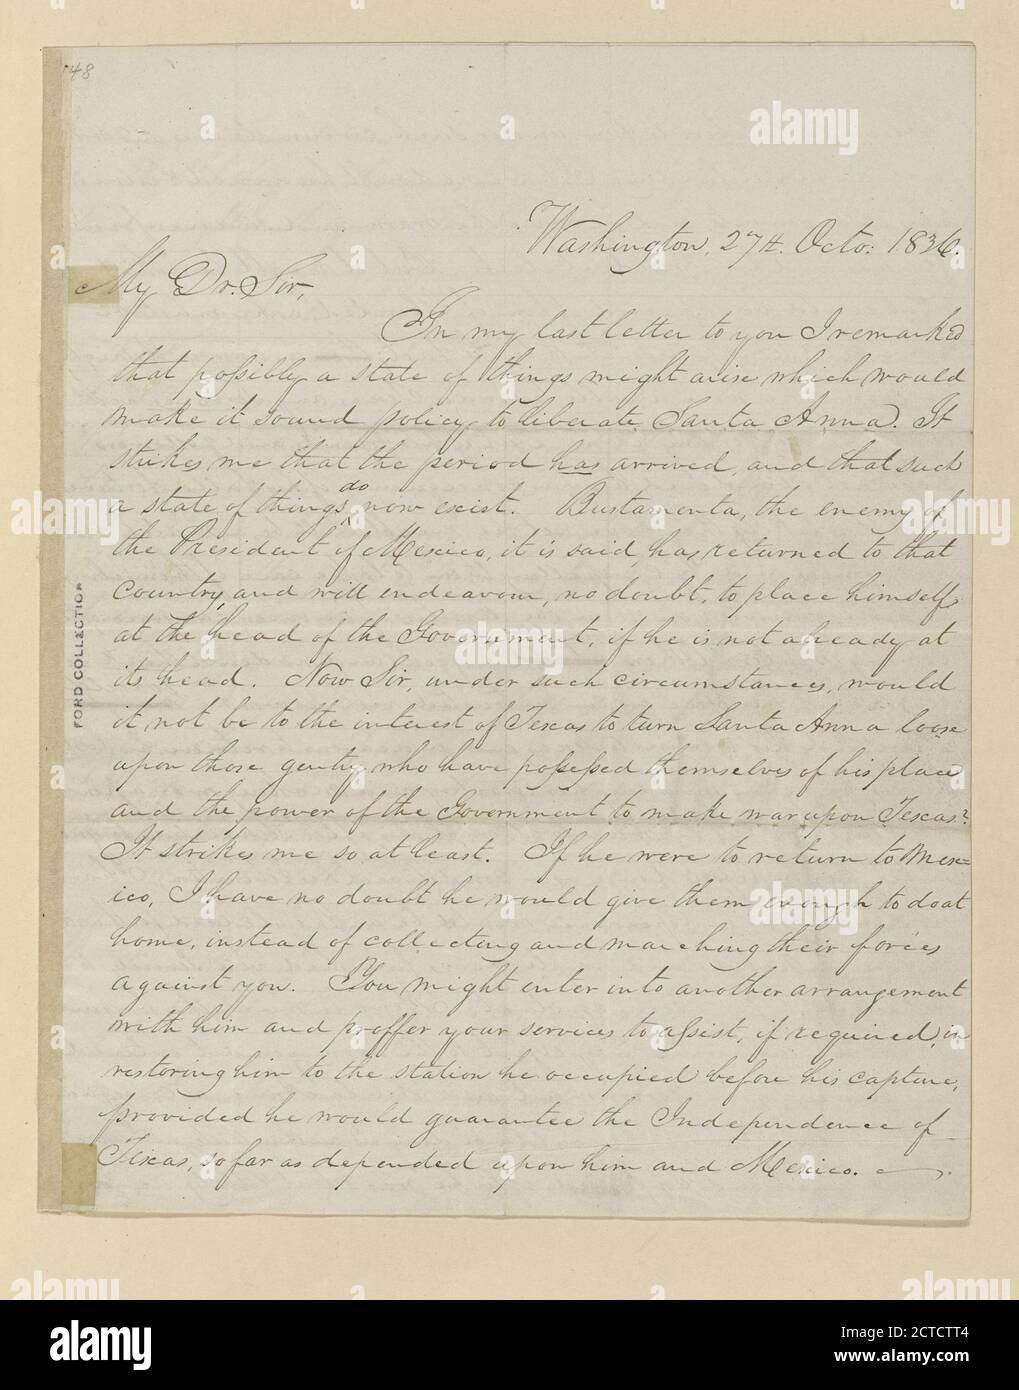 48
Washington, 27th. Octo: 1836.
My Dr. Sir,
In my last letter to you I remarked
that possibly a state of things might arise which would
make it sound policy to liberate Santa Anna. It
strikes me that the period has arrived, and that such
a state of things do now exist. Bustamenta, the enemy of
the President of Mexico, it is said, has returned to that
country, and will endeavour, no doubt, to place himself
at the head of the Government, if he is not already at
its head. Now Sir, under such circumstances, would
it not be to the interest of Texas to turn Santa Anna loose
upon those gentry who have possessed themselves of his place
and the power of the Government to make war upon Texas?
It strikes me so at least. If he were to return to Mex=
ico, I have no doubt he would give them enough to do at
home, instead of collecting and marching their forces
against you. You might enter into another arrangement
with him and proffer your services to assist, if required, in
restoring him to the station he occupied before his capture,
provided he would guarantee the Independence of
Texas, so far as depended upon him and Mexico.
FORD COLLECTION
alamy
a
a
alamy
alamy
alamy
alamy
a
a
alamy
alamy
alamy
alamy
alamy
Image ID: 2CTCTT4
www.alamy.com